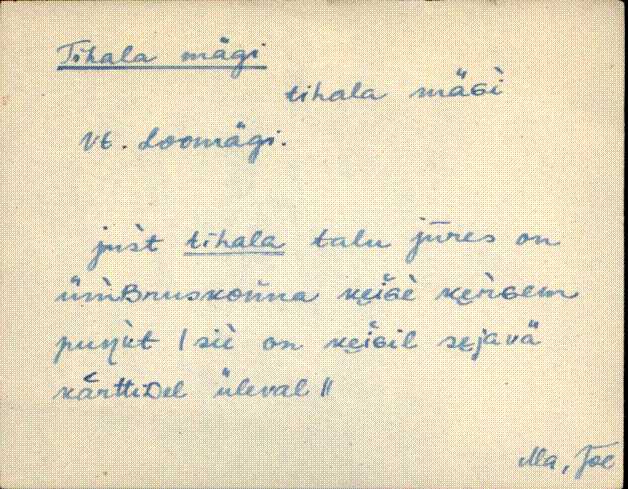 Tihala mägi
tihala mäGì
Vt. Loomägi.
jus̀t tihala talu jūres on
üm̀Bruskoǹna ke̮i̬Gè ke̮r̀Gem
puŋ̀kt / siè on ke̮i̬Gil se̮javä
kàrttiDel üleval //
Ma, Joe